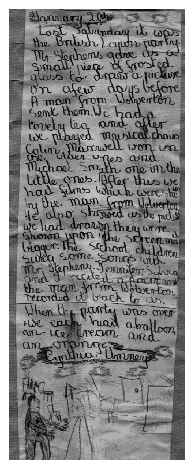 January 20th
Last Saturday it was
the British Legion party
Mr Stephens gave us a
small piece of frosted
glass to draw a picture
on a few days before
A man from Wolverton
sent them We had a
lovely tea and after
we played musical chairs
Colin Maxwell won in
the older ones and
Michael Smith one in the
little ones. After this we
had films which were
by the man from Wolverton
He also showed us the
we had drawn they were
shown upon the screen
bigger. The school children
sung some songs and
Mr Stephens Jennifer
and I recited a poem and
the man from Wolverton
recorded it back to us.
When the party was over
we each had a balloon
an ice cream and
an orange.